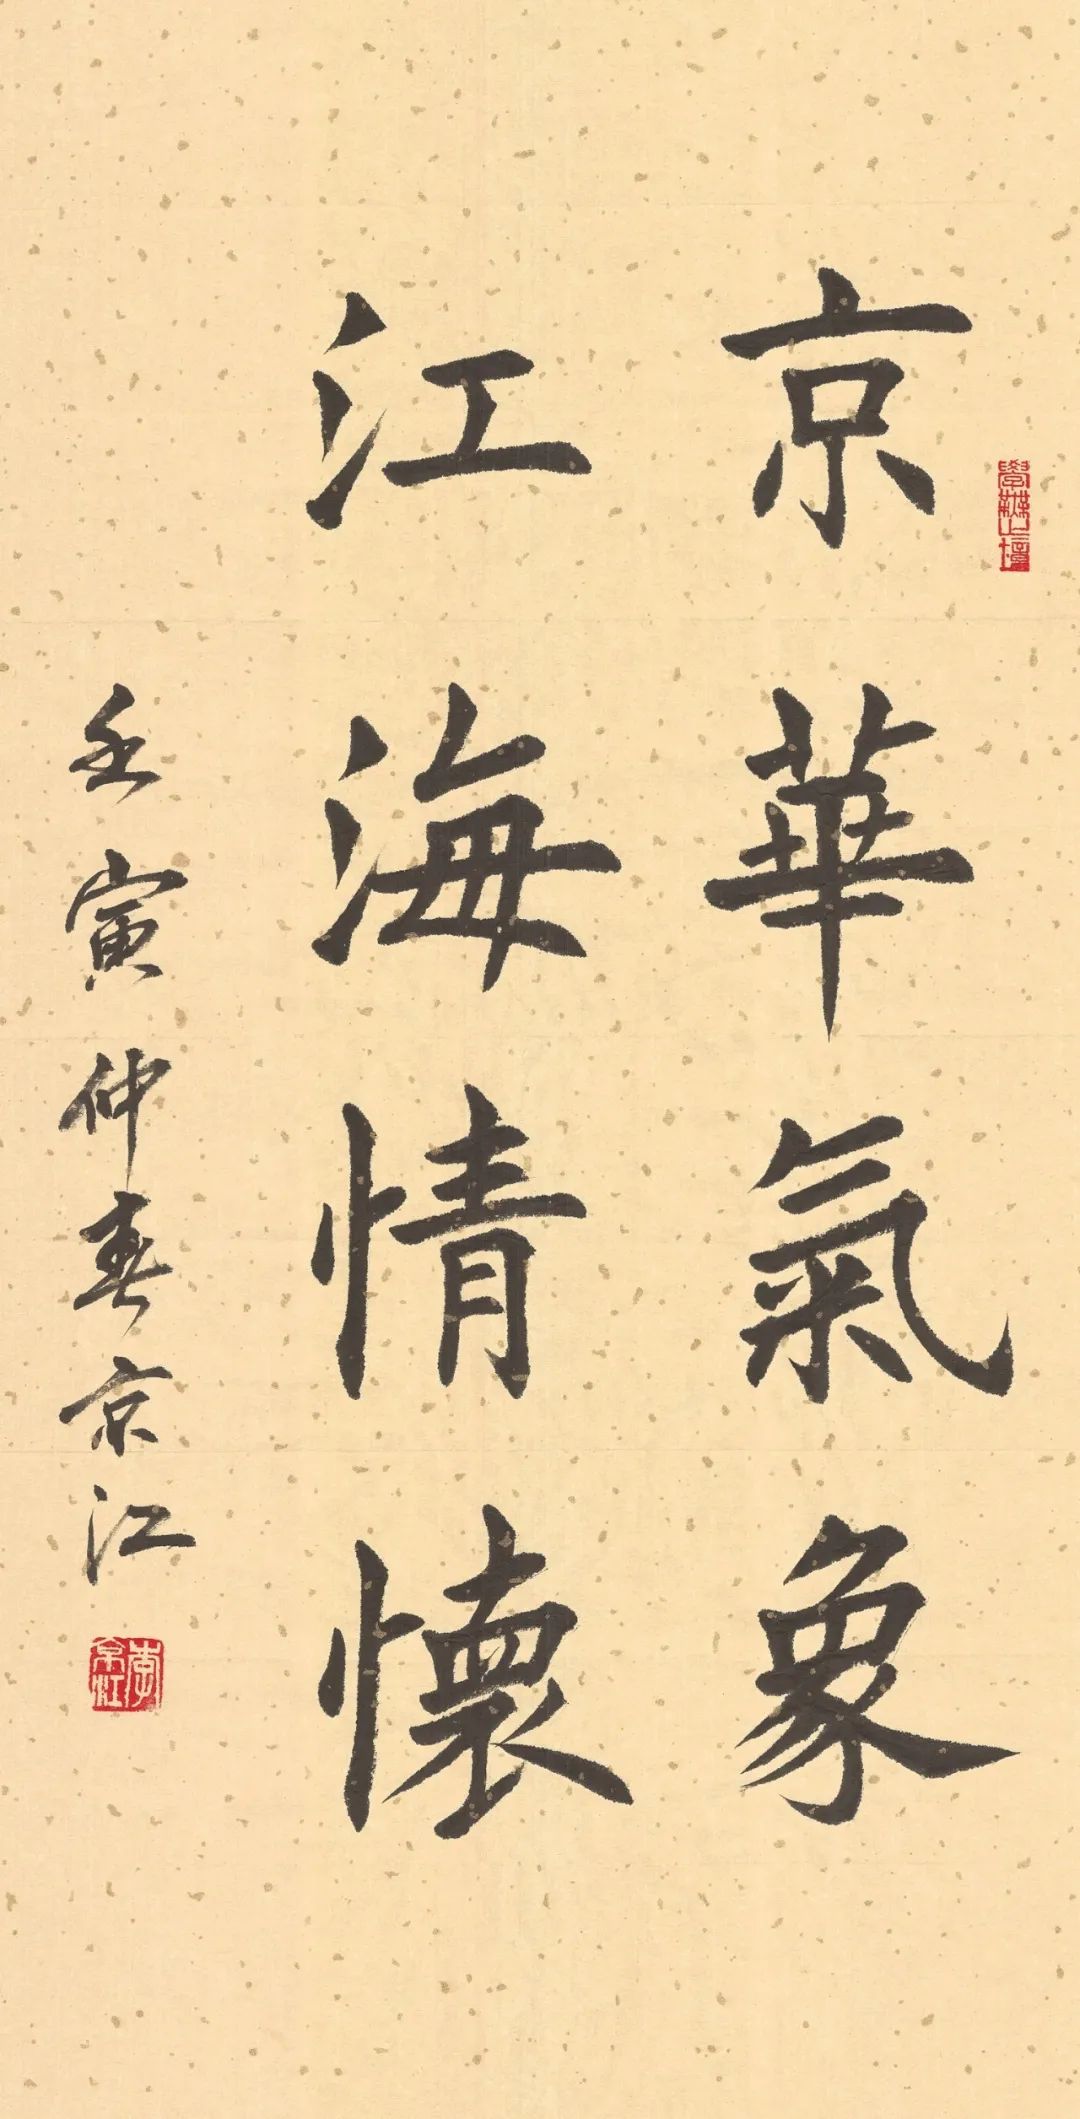 京華氣象
江海情懷
壬寅仲春京江
李京江